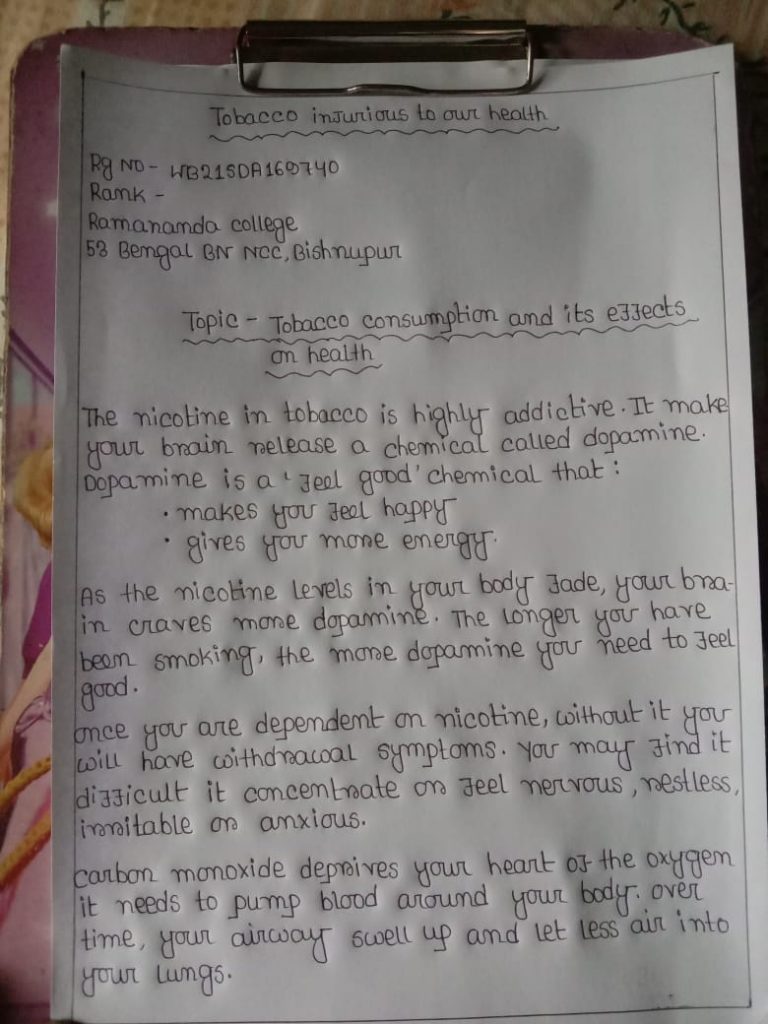 Tobacco injurious to our health
Rg NO - WB21SDA160740
Rank -
Ramananda college
53 Bengal BN NCC, Bishnupur
Topic - Tobacco consumption and its effects
on health
The nicotine in tobacco is highly addictive. It make
your brain release a chemical called dopamine.
Dopamine is a 'feel good' chemical that :
• makes you feel happy
• gives you more energy.
As the nicotine levels in your body fade, your bra-
in craves more dopamine. The longer you have
been smoking, the more dopamine you need to feel
good.
once you are dependent on nicotine, without it you
will have withdrawal symptoms. You may find it
difficult it concentrate or feel nervous, restless,
irritable or anxious.
carbon monoxide deprives your heart of the oxygen
it needs to pump blood around your body. over
time, your airway swell up and let less air into
your lungs.